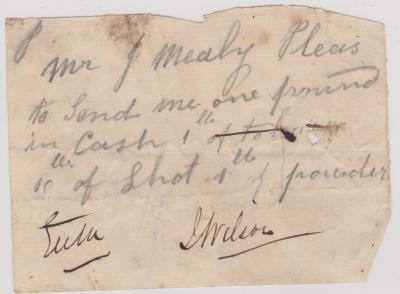 Mr J Mealy Pleas
to Send me one pound
in Cash 1 lb of
10 lbs of Shot 1 lb of powder
J Wilson